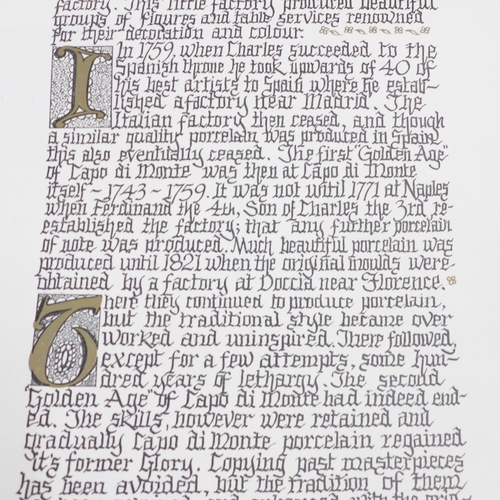 factory. This little factory produced beautiful
groups of figures and table services renowned
for their decoration and colour.
In 1759, when Charles succeeded to the
Spanish throne he took upwards of 40 of
his best artists to Spain where he estab-
lished a factory near Madrid. The
Italian factory then ceased, and though
a similar quality porcelain was produced in Spain
this also eventually ceased. The first "Golden Age"
of Capo di Monte was then at Capo di Monte
itself ~ 1743 ~ 1759. It was not until 1771 at Naples
when Ferdinand the 4th, Son of Charles the 3rd re-
established the factory; that any further porcelain
of note was produced. Much beautiful porcelain was
produced until 1821 when the original moulds were
obtained by a factory at Doccia near Florence.
There they continued to produce porcelain,
but the traditional style became over
worked and uninspired. There followed,
except for a few attempts, some hun-
dred years of lethargy. The second
"Golden Age" of Capo di Monte had indeed end-
ed. The skills, however were retained and
gradually Capo di Monte porcelain regained
it's former Glory. Copying past masterpieces
has been avoided, but the tradition of them